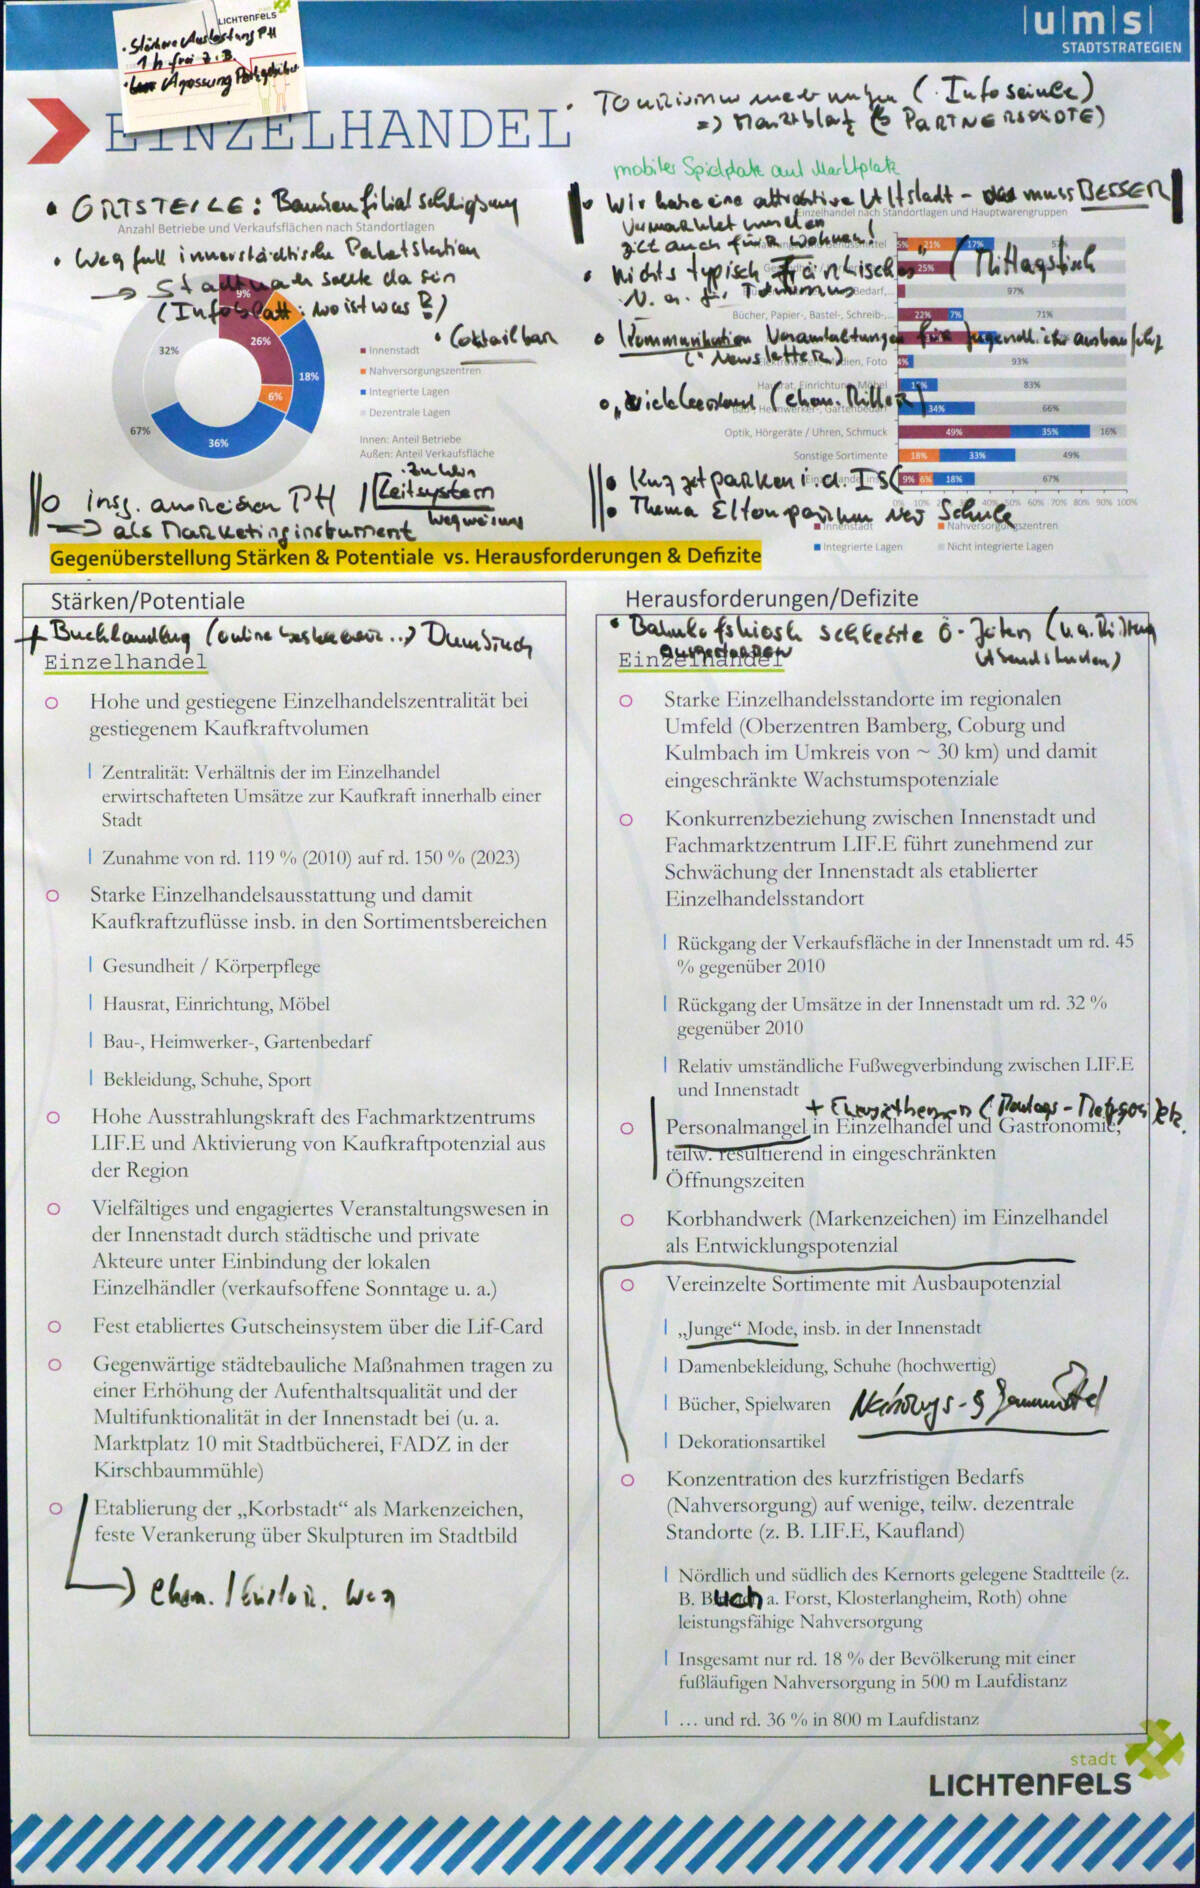 LICHTENFELS
• Stärkere Auslastung PH
1 h frei z. B.
• Anpassung Parkgebühren
|u|m|s|
STADTSTRATEGIEN
EINZELHANDEL
mobiler Spielplatz auf Marktplatz
• ORTSTEILE:
Anzahl Betriebe und Verkaufsflächen nach Standortlagen
• Wegfall innerstädtische Paketstation
(Infoblatt: wo ist was?)
• Cocktailbar
9%
26%
18%
6%
36%
67%
32%
Innenstadt
Nahversorgungszentren
Integrierte Lagen
Dezentrale Lagen
Innen: Anteil Betriebe
Außen: Anteil Verkaufsfläche
insg. ausreichen PH
Leitsystem
Wegweiser
=> als Marketinginstrument
• Wir haben eine attraktive Altstadt - das muss BESSER
Einzelhandel nach Standortlagen und Hauptwarengruppen
vermarktet werden!
gilt auch für Wohnen!
• Nichts typisch "Fränkisches" (Mittagstisch
u. a. für Tourismus
• Kommunikation Veranstaltungen für Jugendliche
(: Newsletter)
5% 21% 17% 57%
25%
97%
Bücher, Papier-, Bastel-, Schreib-,... 22% 7% 71%
Elektrowaren, Medien, Foto 4% 93%
Hausrat, Einrichtung, Möbel 83%
Bau-, Heimwerker-, Gartenbedarf 34% 66%
Optik, Hörgeräte / Uhren, Schmuck 49% 35% 16%
Sonstige Sortimente 18% 33% 49%
9% 6% 18% 67%
0% 10% 20% 30% 40% 50% 60% 70% 80% 90% 100%
• Kurzzeitparken i.d. IS
• Thema Elternparken vor Schule
Innenstadt Nahversorgungszentren
Integrierte Lagen Nicht integrierte Lagen
Gegenüberstellung Stärken & Potentiale vs. Herausforderungen & Defizite
Stärken/Potentiale
Einzelhandel
Hohe und gestiegene Einzelhandelszentralität bei
gestiegenem Kaufkraftvolumen
Zentralität: Verhältnis der im Einzelhandel
erwirtschafteten Umsätze zur Kaufkraft innerhalb einer
Stadt
Zunahme von rd. 119 % (2010) auf rd. 150 % (2023)
Starke Einzelhandelsausstattung und damit
Kaufkraftzuflüsse insb. in den Sortimentsbereichen
Gesundheit / Körperpflege
Hausrat, Einrichtung, Möbel
Bau-, Heimwerker-, Gartenbedarf
Bekleidung, Schuhe, Sport
Hohe Ausstrahlungskraft des Fachmarktzentrums
LIF.E und Aktivierung von Kaufkraftpotenzial aus
der Region
Vielfältiges und engagiertes Veranstaltungswesen in
der Innenstadt durch städtische und private
Akteure unter Einbindung der lokalen
Einzelhändler (verkaufsoffene Sonntage u. a.)
Fest etabliertes Gutscheinsystem über die Lif-Card
Gegenwärtige städtebauliche Maßnahmen tragen zu
einer Erhöhung der Aufenthaltsqualität und der
Multifunktionalität in der Innenstadt bei (u. a.
Marktplatz 10 mit Stadtbücherei, FADZ in der
Kirschbaummühle)
Etablierung der „Korbstadt“ als Markenzeichen,
feste Verankerung über Skulpturen im Stadtbild
Herausforderungen/Defizite
• Bahnhofskiosk schlechte Ö-Zeiten
Einzelhandel
Starke Einzelhandelsstandorte im regionalen
Umfeld (Oberzentren Bamberg, Coburg und
Kulmbach im Umkreis von ~ 30 km) und damit
eingeschränkte Wachstumspotenziale
Konkurrenzbeziehung zwischen Innenstadt und
Fachmarktzentrum LIF.E führt zunehmend zur
Schwächung der Innenstadt als etablierter
Einzelhandelsstandort
Rückgang der Verkaufsfläche in der Innenstadt um rd. 45
% gegenüber 2010
Rückgang der Umsätze in der Innenstadt um rd. 32 %
gegenüber 2010
Relativ umständliche Fußwegverbindung zwischen LIF.E
und Innenstadt
Personalmangel in Einzelhandel und Gastronomie,
teilw. resultierend in eingeschränkten
Öffnungszeiten
Korbhandwerk (Markenzeichen) im Einzelhandel
als Entwicklungspotenzial
Vereinzelte Sortimente mit Ausbaupotenzial
„Junge“ Mode, insb. in der Innenstadt
Damenbekleidung, Schuhe (hochwertig)
Bücher, Spielwaren
Nahrungs- & Genussmittel
Dekorationsartikel
Konzentration des kurzfristigen Bedarfs
(Nahversorgung) auf wenige, teilw. dezentrale
Standorte (z. B. LIF.E, Kaufland)
Nördlich und südlich des Kernorts gelegene Stadtteile (z.
B. Buch a. Forst, Klosterlangheim, Roth) ohne
leistungsfähige Nahversorgung
Insgesamt nur rd. 18 % der Bevölkerung mit einer
fußläufigen Nahversorgung in 500 m Laufdistanz
… und rd. 36 % in 800 m Laufdistanz
stadt
LICHTENFELS